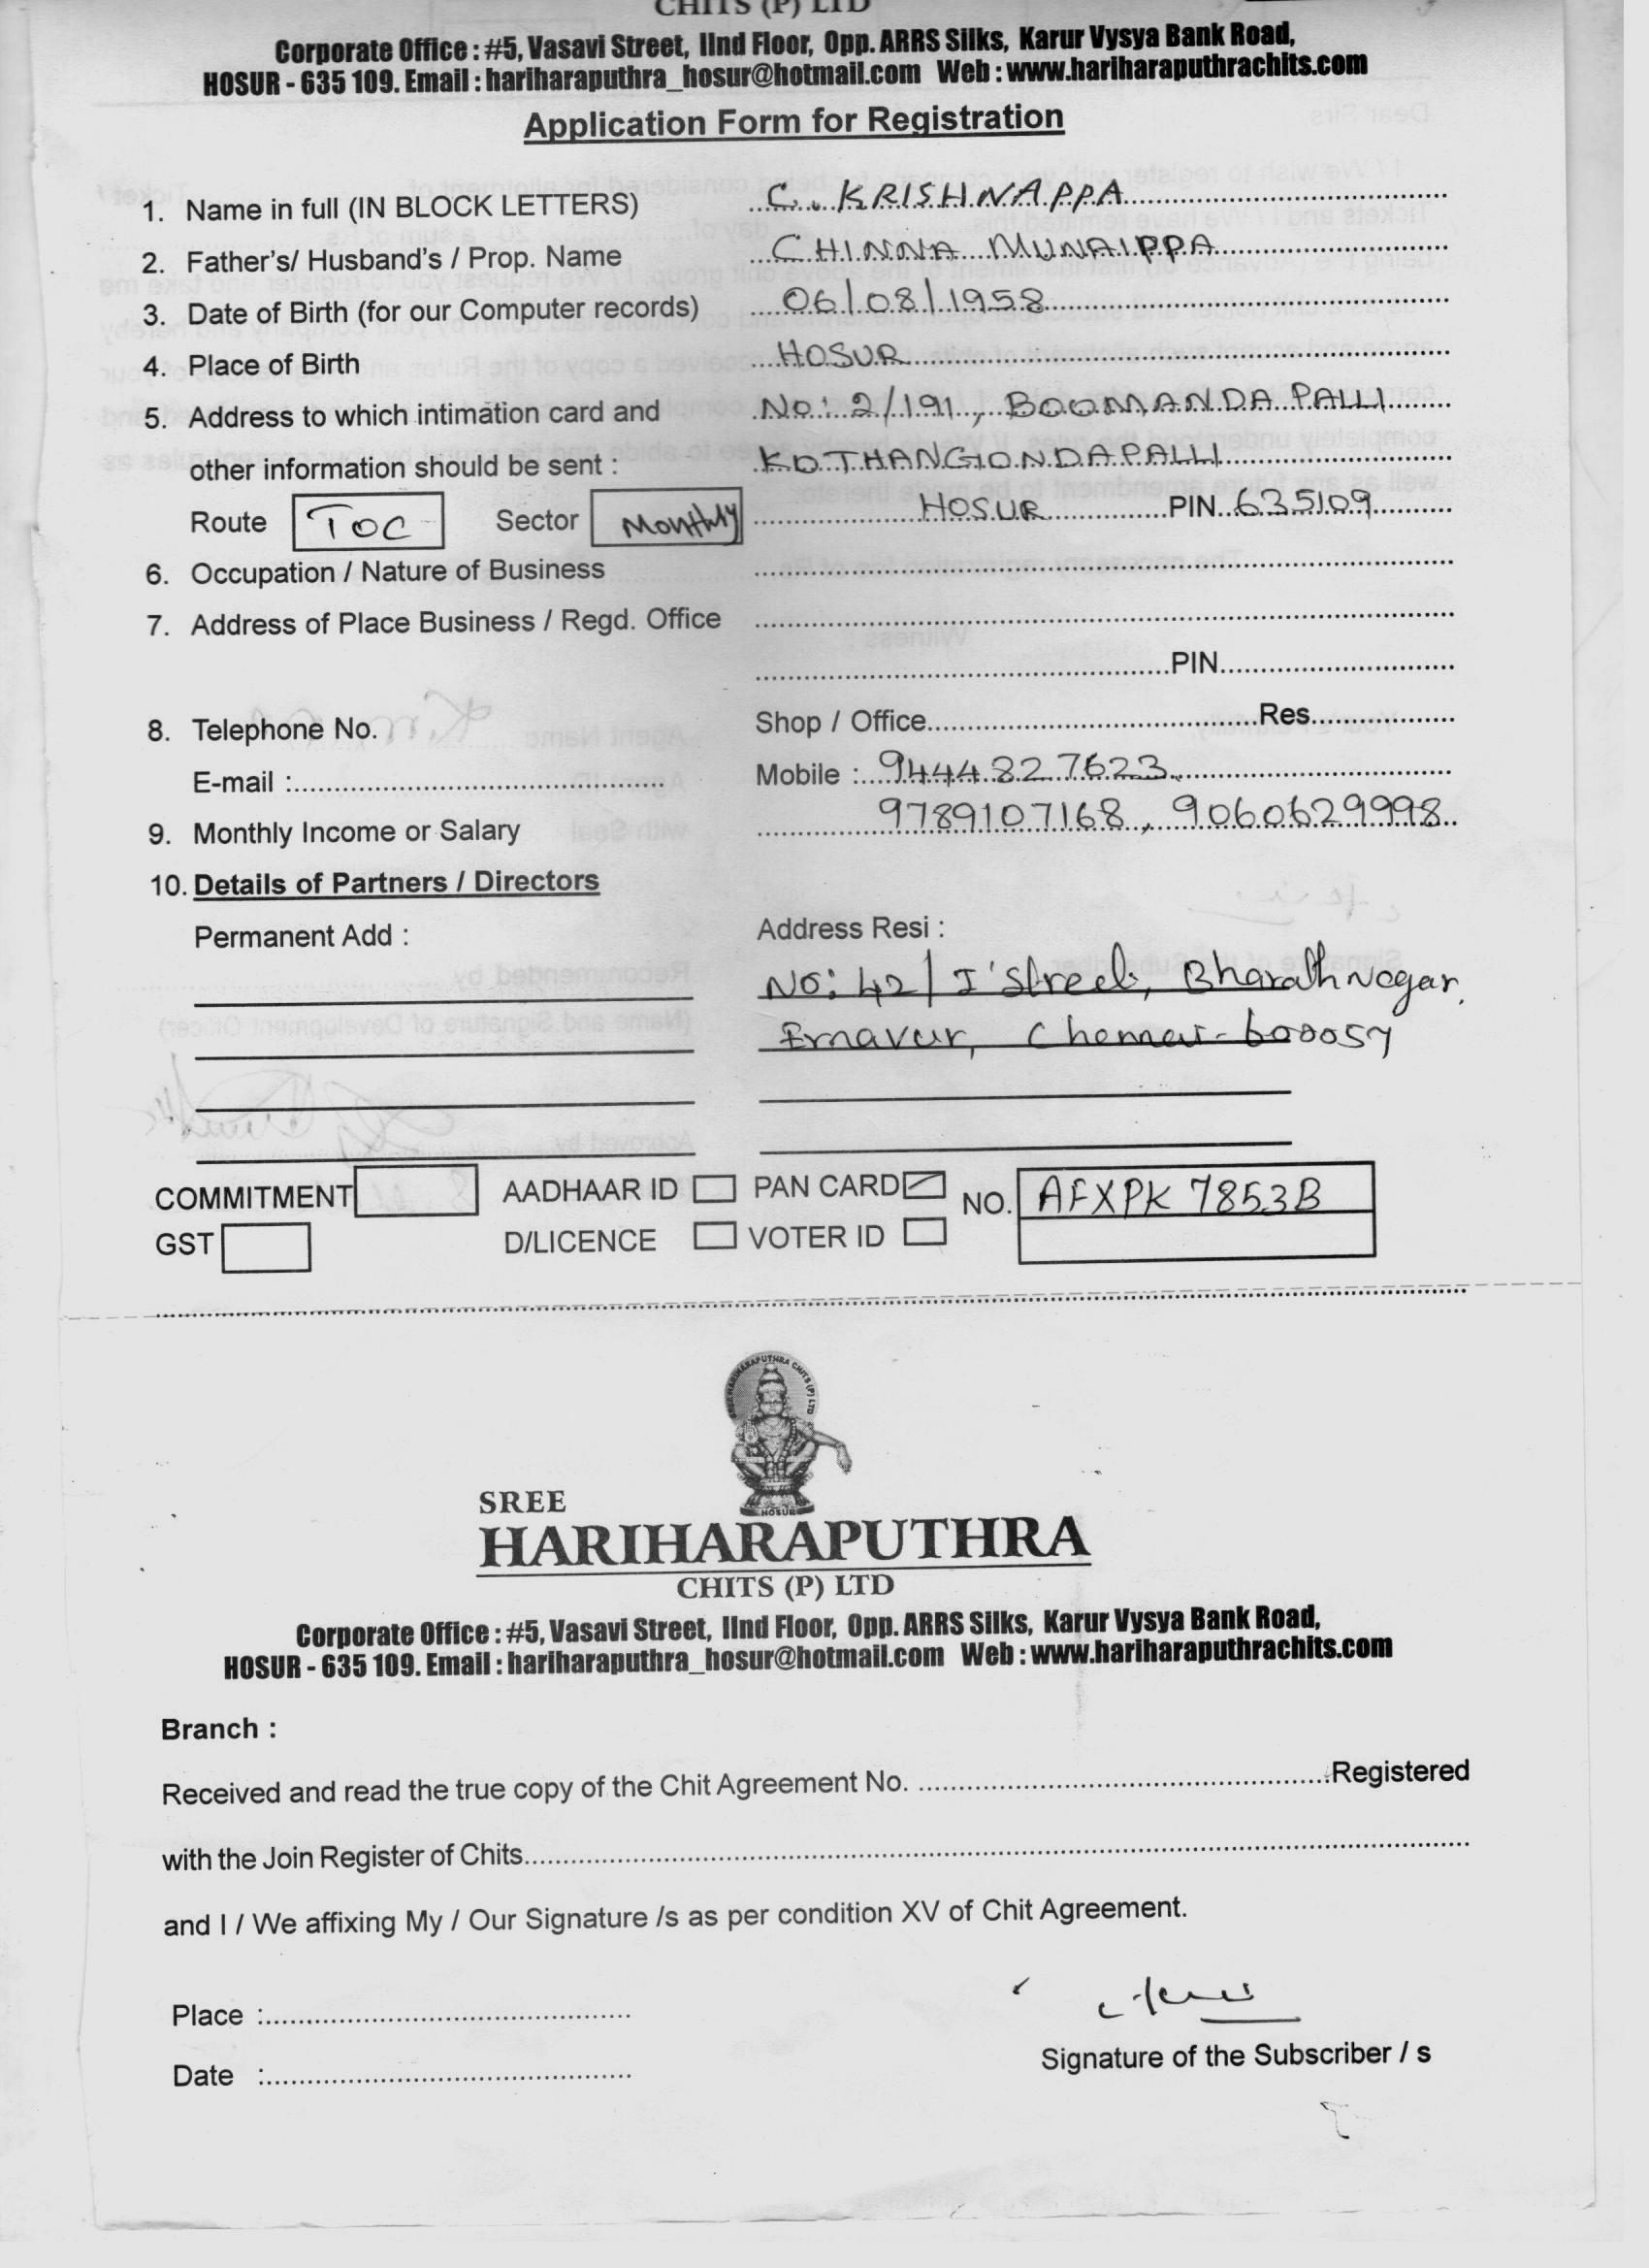 CHITS (P) LTD
Corporate Office : #5, Vasavi Street, IInd Floor, Opp. ARRS Silks, Karur Vysya Bank Road,
HOSUR - 635 109. Email : hariharaputhra_hosur@hotmail.com Web : www.hariharaputhrachits.com
Application Form for Registration
1. Name in full (IN BLOCK LETTERS) C. KRISHNAPPA
2. Father's/ Husband's / Prop. Name CHINNA MUNAIPPA
3. Date of Birth (for our Computer records) 06/08/1958
4. Place of Birth HOSUR
5. Address to which intimation card and No: 2/191, BOOMANDAPALLI
other information should be sent : KOTHANGONDAPALLI
Route TOC Sector Monthly HOSUR PIN 635109
6. Occupation / Nature of Business
7. Address of Place Business / Regd. Office
PIN
8. Telephone No. Shop / Office Res.
E-mail : Mobile : 9444827623
9789107168, 9060629998
9. Monthly Income or Salary
10. Details of Partners / Directors
Permanent Add : Address Resi :
No: 42/ I Street, Bharath Nagar,
Ernavur, Chennai-600057
COMMITMENT AADHAAR ID PAN CARD NO. AFXPK 7853B
GST D/LICENCE VOTER ID
SREE
HARIHARAPUTHRA
CHITS (P) LTD
Corporate Office : #5, Vasavi Street, IInd Floor, Opp. ARRS Silks, Karur Vysya Bank Road,
HOSUR - 635 109. Email : hariharaputhra_hosur@hotmail.com Web : www.hariharaputhrachits.com
Branch :
Received and read the true copy of the Chit Agreement No. Registered
with the Join Register of Chits
and I / We affixing My / Our Signature /s as per condition XV of Chit Agreement.
Place :
Date :
Signature of the Subscriber / s